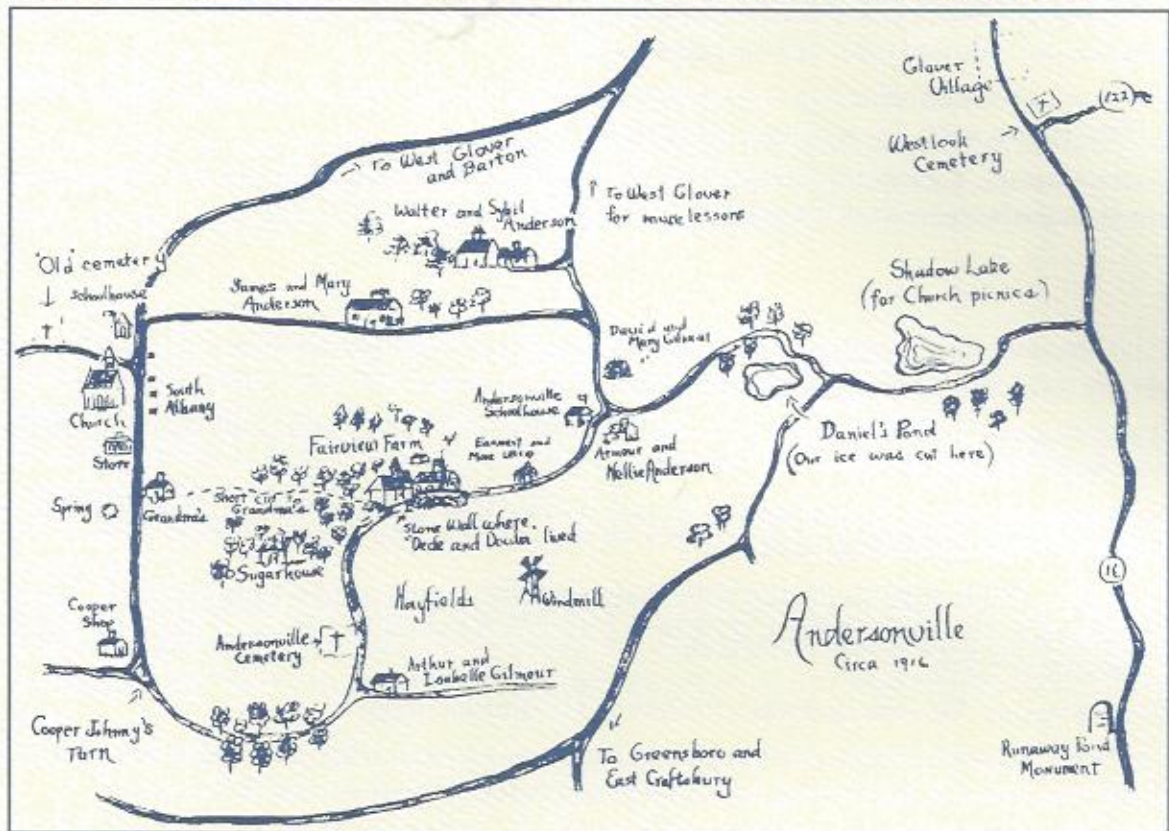 Glover
Village
122
Westlook
Cemetery
To West Glover
and Barton
To West Glover
for music lessons
Walter and Sybil
Anderson
"Old" cemetery
Schoolhouse
James and Mary
Anderson
Shadow Lake
(for Church picnics)
David and
Mary
Church
South
Albany
Store
Andersonville
Schoolhouse
Fairview Farm
Earnest and
Armour and
Nellie Anderson
Daniel's Pond
(Our ice was cut here)
Spring
Grandma's
Short cut to
Grandma's
Stone Wall where
Dede and lived
Sugarhouse
16
Cooper
Shop
Hayfields
Windmill
Andersonville
Circa 1916
Andersonville
Cemetery
Arthur and
Isabelle Gilmour
Cooper Johnny's
Turn
To Greensboro and
East Craftsbury
Runaway Pond
Monument